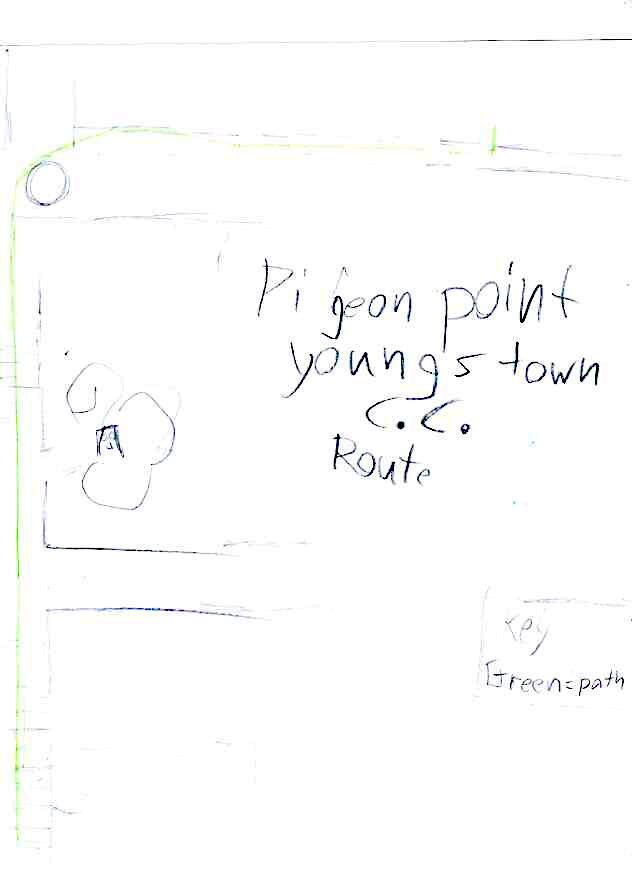 Pigeon point
youngstown
C.C.
Route
Key
Green=path